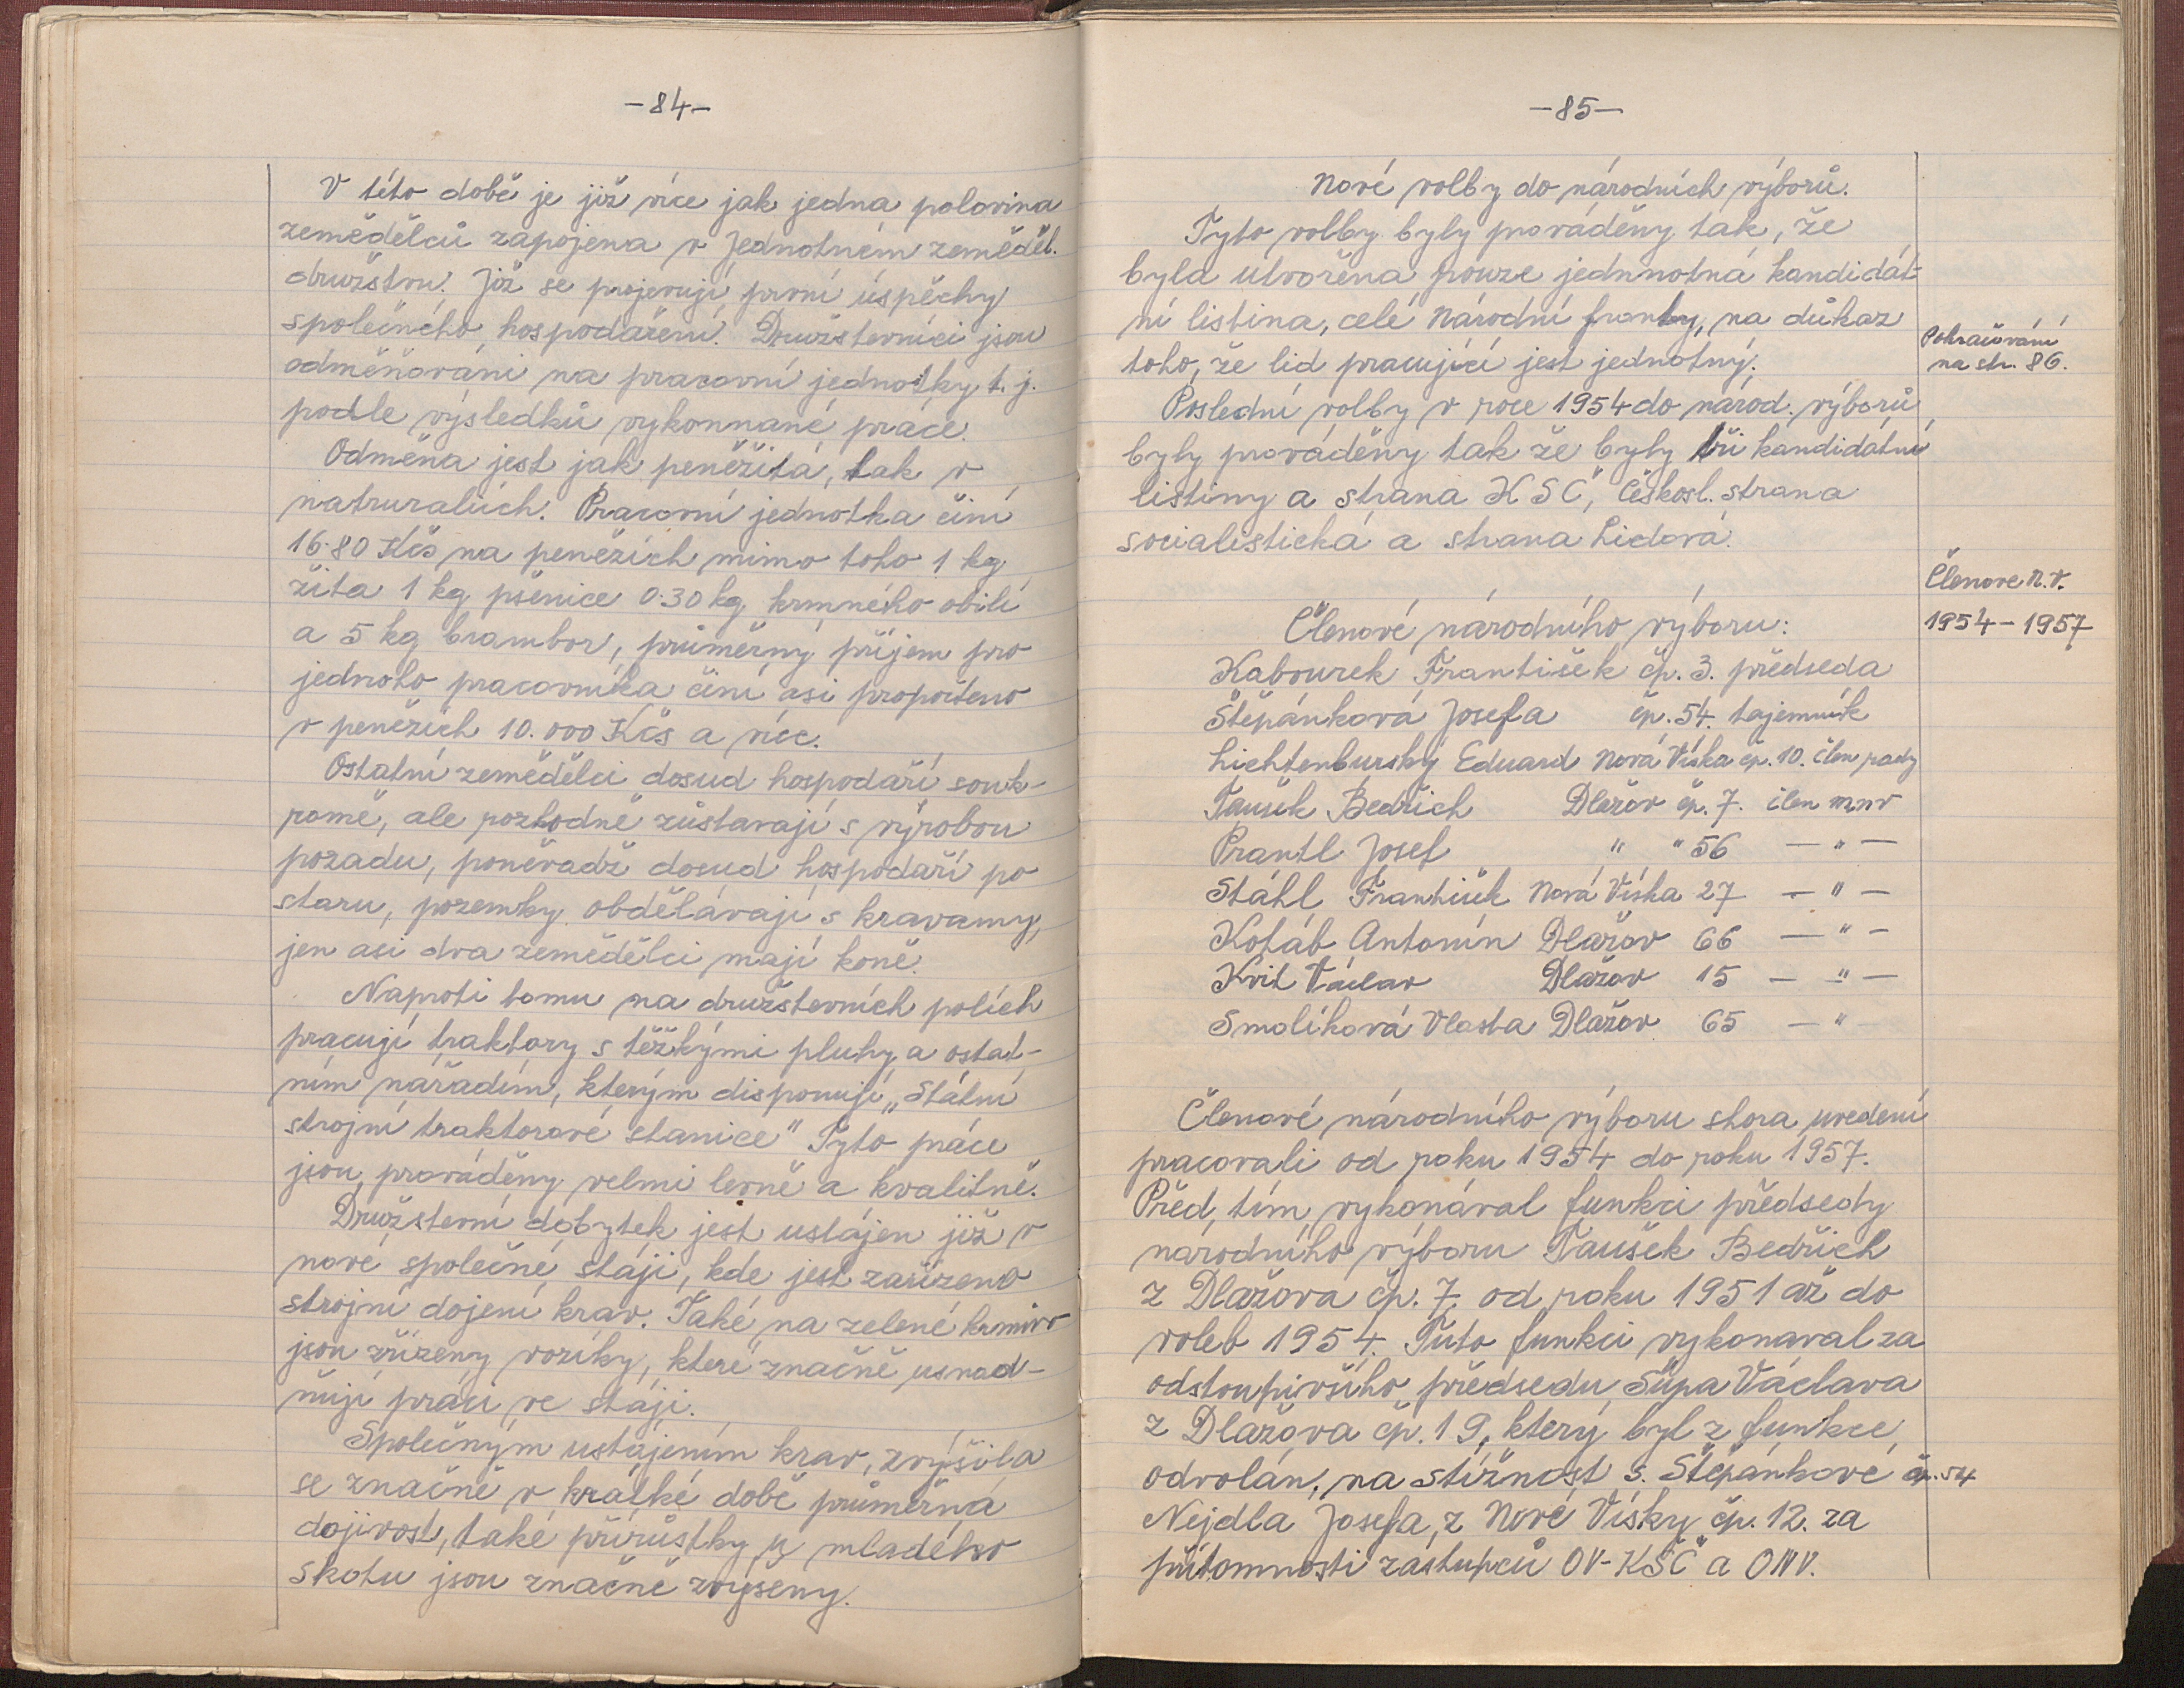 -84-
V této době je již více jak jedna polovina
zemědělců zapojena v Jednotném zeměděl.
družstvu. Již se projevují první úspěchy
společného hospodaření. Družstevníci jsou
odměňováni na pracovní jednotky t.j.
podle výsledků vykonnané práce.
Odměna jest jak peněžitá, tak v
natruraliích. Pracovní jednotka činí
16.80 Kčs na penězích mimo toho 1 kg
žita 1 kg pšenice 0.30 kg krmného obilí
a 5 kg brambor, průměrný příjem pro
jednoho pracovníka činí asi propočteno
v penězích 10.000 Kčs a více.
Ostatní zemědělci dosud hospodaří souk-
romě, ale rozhodně zůstavají s výrobou
pozadu, poněvadž dosud hospodaří po
staru, pozemky obdělávají s kravamy,
jen asi dva zemědělci mají koně.
Naproti tomu na družstevních polích
pracují traktory s těžkými pluhy a ostat-
ním nářadím, kterým disponují „Státní
strojní traktorové stanice" Tyto práce
jsou prováděny velmi levně a kvalitně.
Družstevní dobytek jest ustájen již v
nové společné stáji, kde jest zařízeno
strojní dojení krav. Také na zelené krmivo
jsou zřízeny vozíky, které značně usnad-
ňují práci ve stáji.
Společným ustájením krav, zvýšila
se značně v krátké době průměrná
dojivost, také přírůstky u mladého
skotu jsou značně zvýšeny.
-85-
Nové volby do národních výborů.
Tyto volby byly prováděny tak, že
byla utvořena pouze jednnotná kandidát-
ní listina, celé Národní fronty, na důkaz
toho, že lid pracující jest jednotný.
Pokračování
na str. 86.
Poslední volby v roce 1954 do národ. výborů
byly prováděny tak že byly tři kandidátní
listiny a strana KSČ, Českosl. strana
socialistická a strana Lidová.
Členove N.V.
1954-1957
Členové národního výboru:
Kabourek František čp. 3. předseda
Štěpánková Josefa čp. 54. tajemník
Lichtenburský Eduard Nová Víska čp. 10. člen rady
Taušek Bedřich Dlažov čp. 7. člen mnv
Prantl Josef " " 56 — " —
Stáhl František Nová Víska 27 — " —
Kotáb Antonín Dlažov 66 — " —
Kvit Václav Dlažov 15 — " —
Smolíková Vlasta Dlažov 65 — " —
Členové národního výboru shora uvedení
pracovali od roku 1954 do roku 1957.
Před, tím vykonával funkci předsedy
národního výboru Taušek Bedřich
z Dlažova čp. 7, od roku 1951 až do
voleb 1954. Tuto funkci vykonaval za
odstoupivšího předsedu Šůpa Václava
z Dlažova čp. 19, který byl z funkce
odvolán, na stížnost s. Štěpánkové čp. 54
Nejdla Josefa, z Nové Vísky čp. 12. za
přítomnosti zástupců OV-KSČ a ONV.